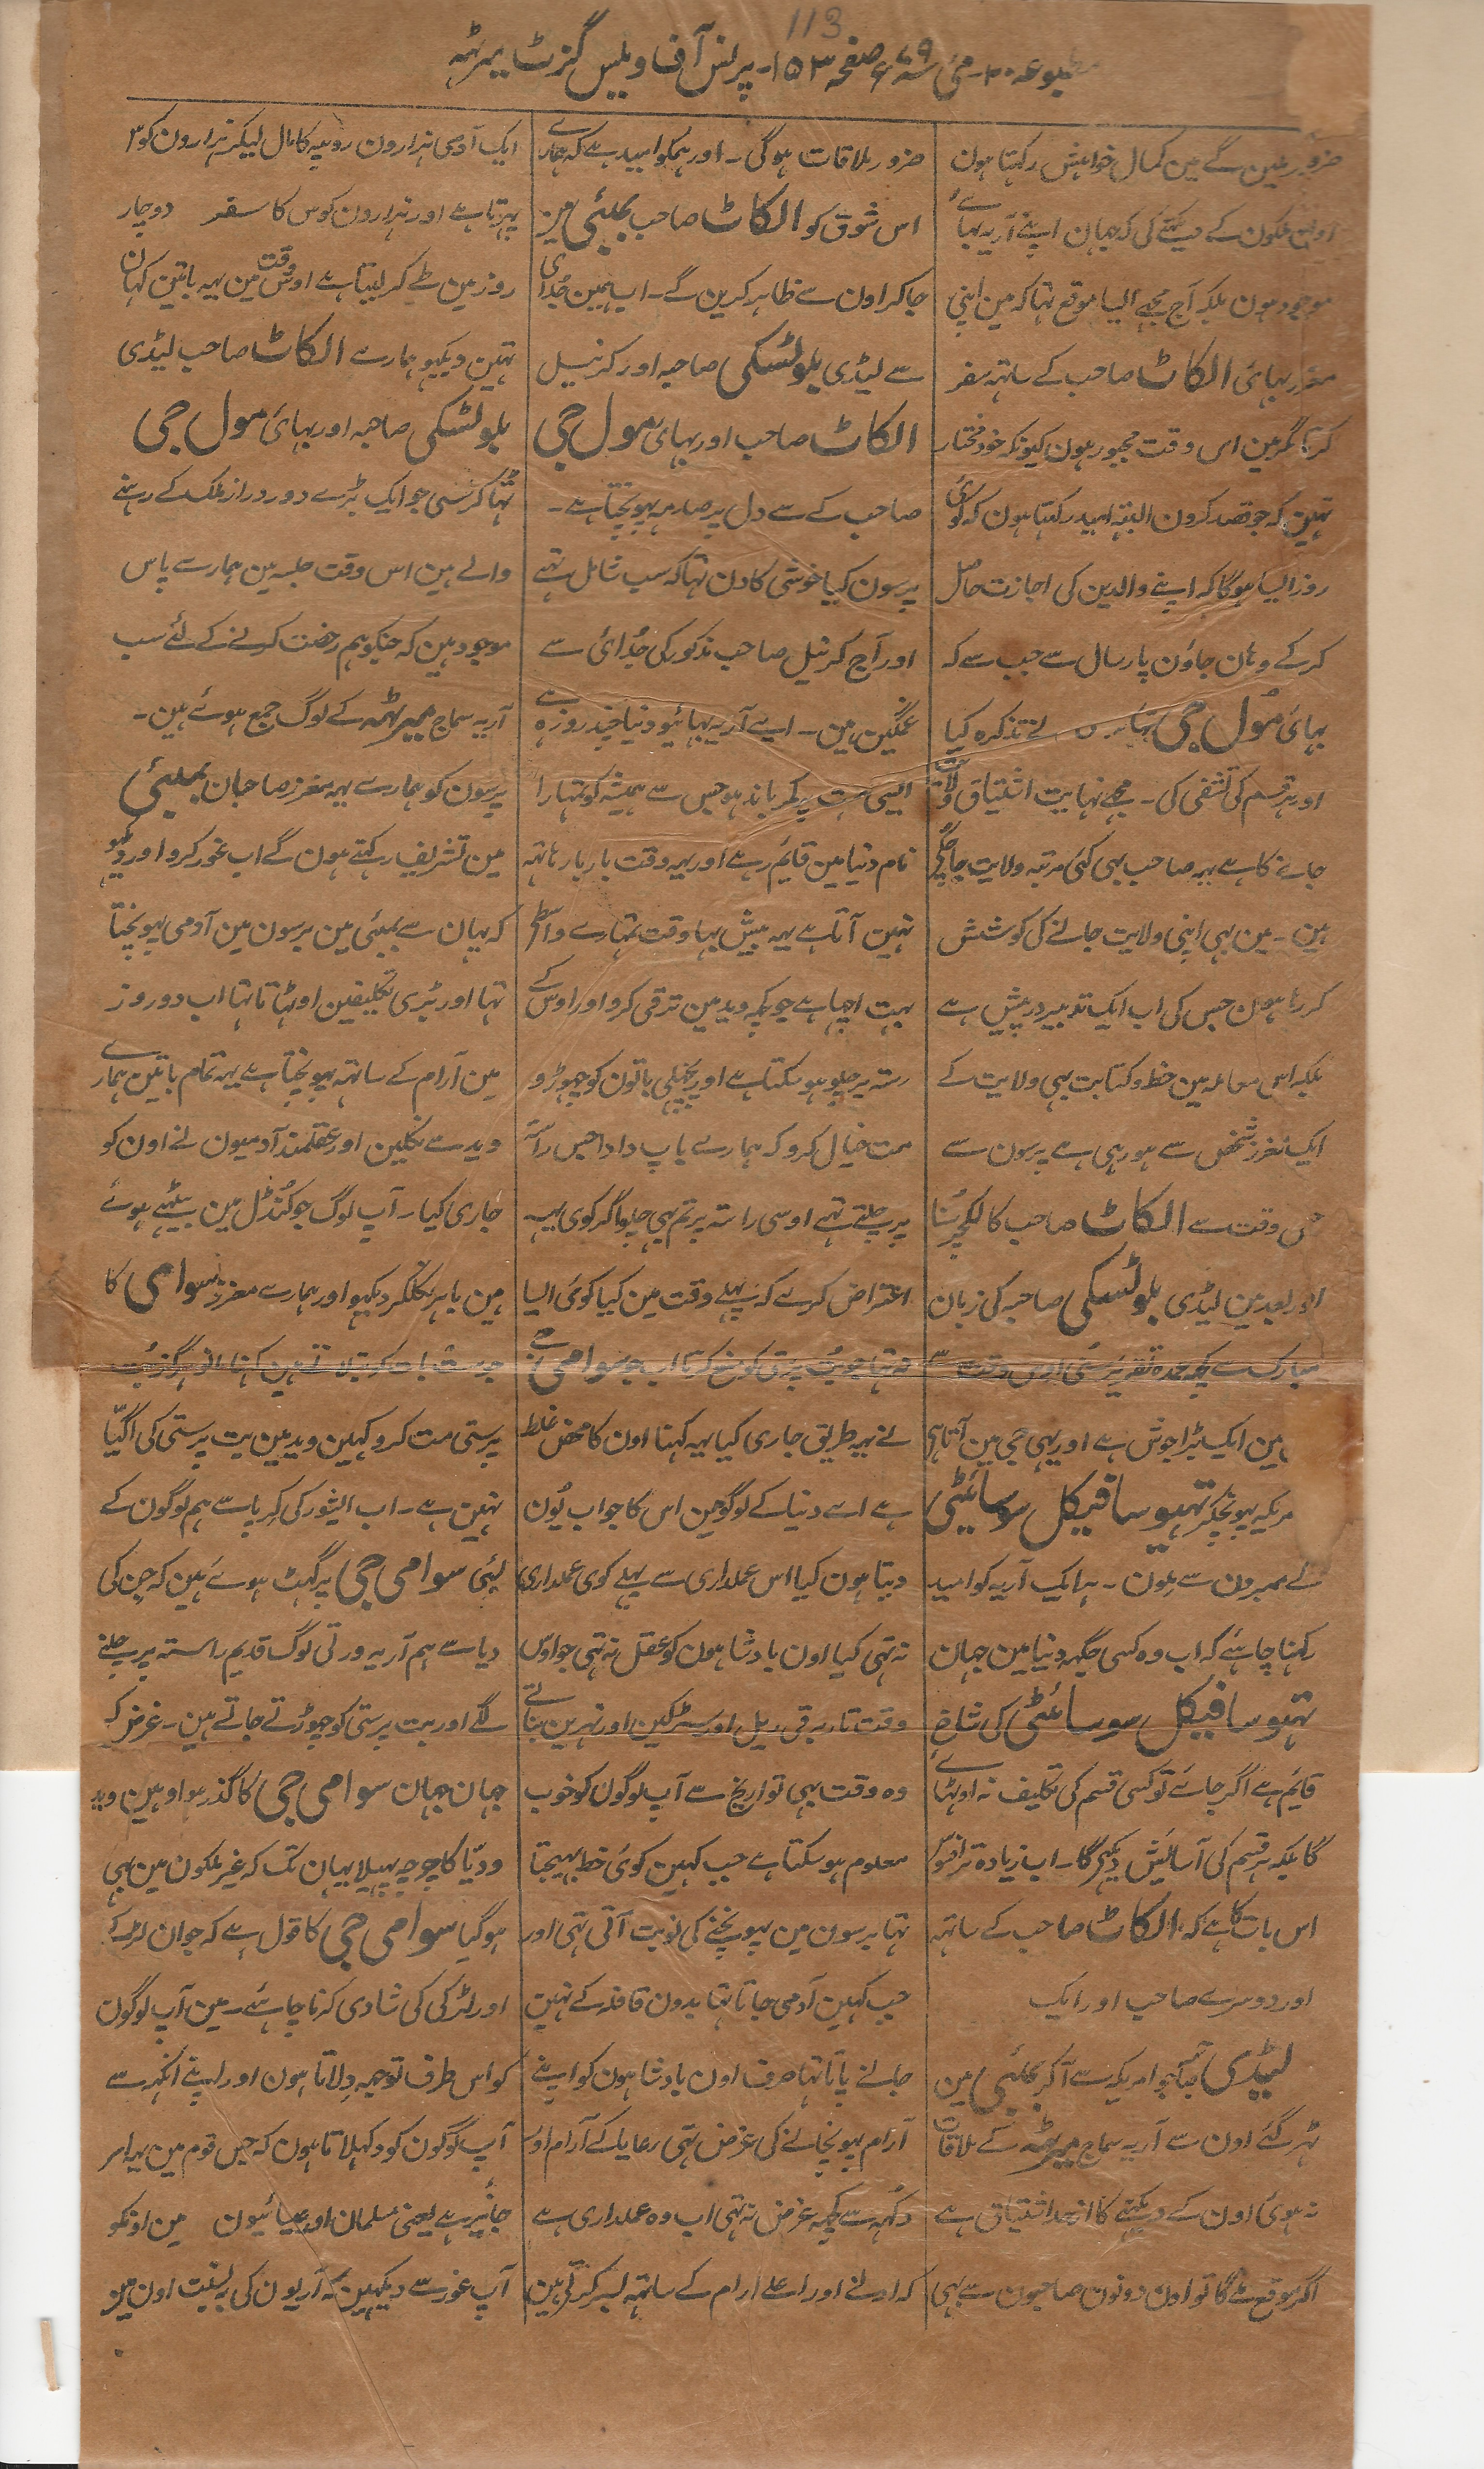 113
مطبوعہ ۲۰ مئی سنہ ۷۹ء صفحہ ۱۵۳ - پرنس آف ویلس گزٹ میرٹہہ
ضرور ملین گے مین کمال خواہش رکہتا ہون
اون ملکون کے دیکہنے کی کہ جہان اپنے آریہ بہائے
موجود ہون بلکہ آج مجہے ایسا موقع تہا کہ مین اپنی
معزز بہائی الکاٹ صاحب کے ساتہہ سفر
کرتا مگر مین اس وقت مجبور ہون کیونکہ خود مختار
نہین کہ جو قصد کرون البتہ امید رکہتا ہون کہ کوئی
روز ایسا ہوگا کہ اپنے والدین کی اجازت حاصل
کرکے وہان جاؤن پارسال سے جب سے کہ
بہائی مول جی نے تذکرہ کیا
اور ہر قسم کی تشفی کی - مجہے نہایت اشتیاق ولایت
جانے کا ہے یہہ صاحب بہی کئی مرتبہ ولایت جا چکے
ہین - مین بہی اپنی ولایت جانے کی کوشش
کر رہا ہون جس کی اب ایک تدبیر درپیش ہے
بلکہ اس معاملہ مین خط و کتابت بہی ولایت کے
ایک معزز شخص سے ہو رہی ہے پرسون سے
جس وقت سے الکاٹ صاحب کا لکچر سنا
اور بعد مین لیڈی بلوٹسکی صاحبہ کی زبان
مبارک سے کچہہ عمدہ تقریر سنی اوس وقت سے
مین ایک بڑا جوش ہے اور یہی جی مین آتا ہے
مریکہ پہونچکر تہیوسافیکل سوسائیٹی
کے ممبرون سے ملون - ہر ایک آریہ کو امید
رکہنا چاہئے کہ اب وہ کسی جگہہ دنیا مین جہان
تہیوسافیکل سوسائیٹی کی شاخ
قائم ہے اگر جائے تو کسی قسم کی تکلیف نہ اوٹہائے
گا بلکہ ہر قسم کی آسایش دیکہیگا - اب زیادہ تر افسوس
اس بات کا ہے کہ الکاٹ صاحب کے ساتہہ
اور دوسرے صاحب اور ایک
لیڈی صاحبہ جو امریکہ سے آکر بمبئی مین
ٹہر گئے اون سے آریہ سماج میرٹہہ کے ملاقات
نہ ہوئی اون کے دیکہنے کا ازحد اشتیاق ہے
اگر موقع ملے گا تو اون دونون صاحبون سے بہی
ضرور ملاقات ہوگی - اور ہمکو امید ہے کہ ہمارے
اس شوق کو الکاٹ صاحب بمبئی مین
جاکر اون سے ظاہر کرین گے - اب ہمین جدائی
سے لیڈی بلوٹسکی صاحبہ اور کرنیل
الکاٹ صاحب اور بہائی مول جی
صاحب کے سے دل پر صدمہ پہونچتا ہے -
پرسون کیا خوشی کا دن تہا کہ سب شامل تہے
اور آج کرنیل صاحب مذکور کی جدائی سے
غمگین ہین - اے آریہ بہائیو دنیا چند روزہ ہے
ایسی ہمت پر کمر باندہو جس سے ہمیشہ کو تمہارا
نام دنیا مین قایم رہے اور یہہ وقت بار بار ہاتہہ
نہین آتا ہے یہہ بیش بہا وقت تمہارے واسطے
بہت اچہا ہے جو کچہہ وید مین ترقی کرو اور اوس کے
رستہ پر چلو ہو سکتا ہے اور پچہلی باتون کو چہوڑو
مت خیال کرو کہ ہمارے باپ دادا جس راستہ
پر چلتے تہے اوسی راستہ پر تم بہی چلو اگر کوی یہہ
اعتراض کرے کہ پہلے وقت مین کیا کوئی ایسا
نہ تہا جو بت پرستی کو منع کرتا اب جو سوامی جی
نے یہہ طریق جاری کیا یہہ کہنا اون کا محض غلط
ہے اے دنیا کے لوگو مین اس کا جواب یون
دیتا ہون کیا اس عملداری سے پہلے کوی عملداری
نہ تہی کیا اون بادشاہون کو عقل نہ تہی جو اوس
وقت تار برقی ریل اور سڑکین اور نہرین بناتے
وہ وقت بہی تواریخ سے آپ لوگون کو خوب
معلوم ہو سکتا ہے جب کہین کوئی خط بہیجتا
تہا برسون مین پہونچنے کی نوبت آتی تہی اور
جب کہین آدمی جاتا تہا بدون قافلہ کے نہین
جانے پاتا تہا صرف اون بادشاہون کو اپنے
آرام پہونچانے کی غرض تہی رعایا کے آرام اور
دکہہ سے کچہہ غرض نہ تہی اب وہ عملداری ہے
کہ ادنے اور اعلے آرام کے ساتہہ بسر کرتے ہین
ایک آدمی ہزارون روپیہ کا مال لیکر ہزارون کوس
پہرتا ہے اور ہزارون کوس کا سفر دو چار
روز مین طے کر لیتا ہے اوس وقت مین یہہ باتین کہان
تہین دیکہو ہمارے الکاٹ صاحب لیڈی
بلوٹسکی صاحبہ اور بہائی مول جی
ٹہاکرسی جو ایک بڑے دور دراز ملک کے رہنے
والے ہین اس وقت جلسہ مین ہمارے پاس
موجود ہین کہ جنکو ہم رخصت کرنے کے لئے سب
آریہ سماج میرٹہہ کے لوگ جمع ہوئے ہین -
پرسون کو ہمارے یہہ معزز صاحبان بمبئی
مین تشریف رکہتے ہون گے اب غور کرو اور دیکہو
کہ یہان سے بمبئی مین برسون مین آدمی پہونچتا
تہا اور بڑی تکلیفین اوٹہاتا تہا اب دو روز
مین آرام کے ساتہہ پہونچتا ہے یہہ تمام باتین ہمارے
وید سے نکلین اور عقلمند آدمیون نے اون کو
جاری کیا - آپ لوگ جو کنڈل مین بیٹہے ہوئے
ہین باہر نکلکر دیکہو اور ہمارے معزز سوامی کا
پرستی مت کرو کہین وید مین بت پرستی کی اگیا
نہین ہے - اب ایشور کی کرپا سے ہم لوگون کے
لیئے سوامی جی پرگہٹ ہوئے ہین کہ جن کی
دیا سے ہم آریہ ورتی لوگ قدیم راستہ پر چلنے
لگے اور بت پرستی کو چہوڑتے جاتے ہین - غرض کہ
جہان جہان سوامی جی کا گذر ہوا وہین وید
ودیا کا چرچہ پہیلا یہان تک کہ غیر ملکون مین بہی
ہوگیا سوامی جی کا قول ہے کہ جوان لڑکے
اور لڑکی کی شادی کرنا چاہئے - مین آپ لوگون
کو اس طرف توجہہ دلاتا ہون اور اپنے آنکہہ سے
آپ لوگون کو دکہلاتا ہون کہ جس قوم مین یہہ امر
جائیز ہے یعنی مسلمان اور عیسائیون مین اونکو
آپ غور سے دیکہین کہ آریون کی بہ نسبت اون مین